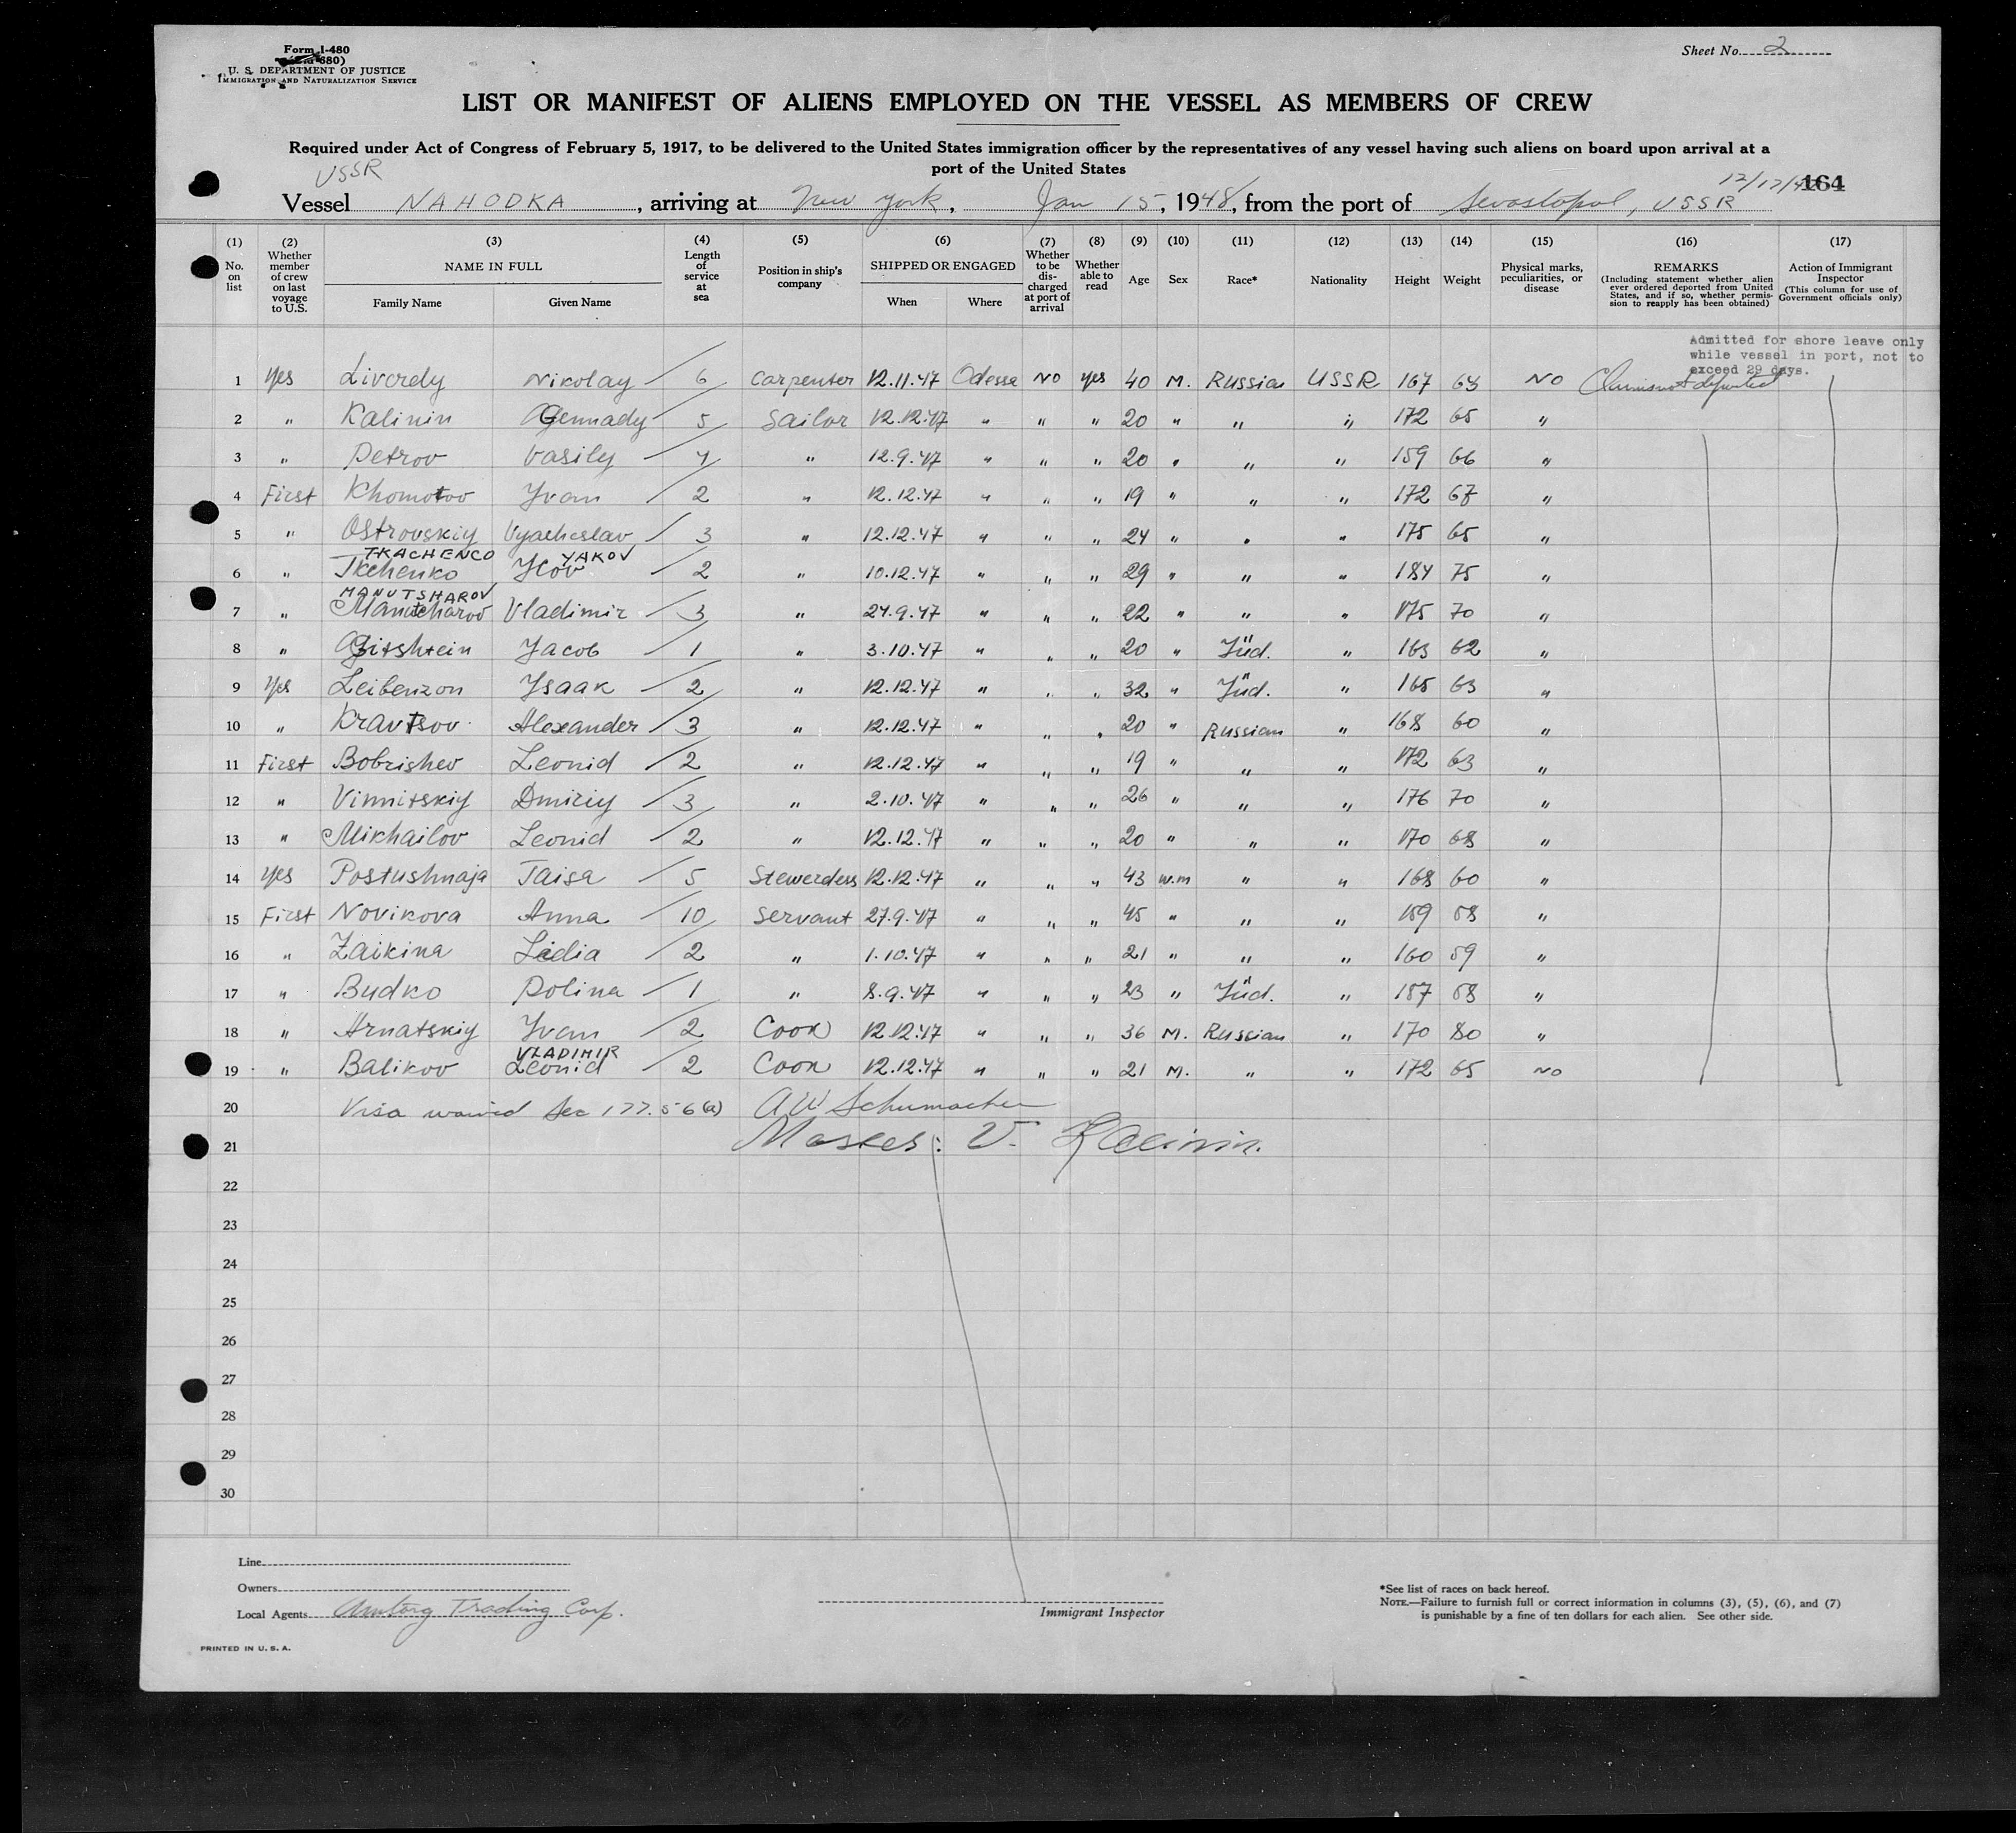 Form I-480
U. S. DEPARTMENT OF JUSTICE
IMMIGRATION AND NATURALIZATION SERVICE
Sheet No. 2
LIST OR MANIFEST OF ALIENS EMPLOYED ON THE VESSEL AS MEMBERS OF CREW
Required under Act of Congress of February 5, 1917, to be delivered to the United States immigration officer by the representatives of any vessel having such aliens on board upon arrival at a
port of the United States
USSR
12/17/47 164
Vessel NAHODKA, arriving at New York, Jan 15, 1948, from the port of Sevastopol, USSR
(1) No. on list
(2) Whether member of crew on last voyage to U.S.
(3) NAME IN FULL
Family Name
Given Name
(4) Length of service at sea
(5) Position in ship's company
(6) SHIPPED OR ENGAGED
When
Where
(7) Whether to be discharged at port of arrival
(8) Whether able to read
(9) Age
(10) Sex
(11) Race*
(12) Nationality
(13) Height
(14) Weight
(15) Physical marks, peculiarities, or disease
(16) REMARKS
(Including statement whether alien ever ordered deported from United States, and if so, whether permission to reapply has been obtained)
(17) Action of Immigrant Inspector
(This column for use of Government officials only)
Admitted for shore leave only
while vessel in port, not to
exceed 29 days.
1 Yes Liverdy Nikolay 6 Carpenter 12.11.47 Odessa No yes 40 M. Russian USSR 167 64 No Claims not deported
2 " Kalinin Gennady 5 Sailor 12.12.47 " " " 20 " " " 172 65 "
3 " Petrov Vasily 4 " 12.9.47 " " " 20 " " " 159 66 "
4 First Khomotov Yvan 2 " 12.12.47 " " " 19 " " " 172 67 "
5 " Ostrovskiy Vyacheslav 3 " 12.12.47 " " " 24 " " " 175 65 "
TKACHENCO YAKOV
6 " Tkchenko Ycov 2 " 10.12.47 " " " 29 " " " 184 75 "
MANUTSHAROV
7 " Manutcharov Vladimir 3 " 24.9.47 " " " 22 " " " 175 70 "
8 " Gitshtein Jacob 1 " 3.10.47 " " " 20 " Jüd. " 163 62 "
9 Yes Leibenzon Ysaak 2 " 12.12.47 " " " 32 " Jüd. " 165 63 "
10 " Kravtsov Alexander 3 " 12.12.47 " " " 20 " Russian " 168 60 "
11 First Bobrishev Leonid 2 " 12.12.47 " " " 19 " " " 172 63 "
12 " Vinnitskiy Dmiriy 3 " 2.10.47 " " " 26 " " " 176 70 "
13 " Mikhailov Leonid 2 " 12.12.47 " " " 20 " " " 170 68 "
14 Yes Postushnaja Taisa 5 Stewerdess 12.12.47 " " " 43 w.m " " 168 60 "
15 First Novikova Anna 10 Servant 27.9.47 " " " 45 " " " 159 58 "
16 " Zaikina Lidia 2 " 1.10.47 " " " 21 " " " 160 59 "
17 " Budko Polina 1 " 8.9.47 " " " 23 " Jüd. " 157 58 "
18 " Arnatskiy Yvan 2 Cook 12.12.47 " " " 36 M. Russian " 170 80 "
VLADIMIR
19 " Balikov Leonid 2 Cook 12.12.47 " " " 21 M. " " 172 65 No
20 Visa waived Sec 177.56(a) A W Schumacher
21 Master: V. Kalinin.
22
23
24
25
26
27
28
29
30
Line
Owners
Local Agents Amtorg Trading Corp.
Immigrant Inspector
*See list of races on back hereof.
NOTE.—Failure to furnish full or correct information in columns (3), (5), (6), and (7)
is punishable by a fine of ten dollars for each alien. See other side.
PRINTED IN U. S. A.